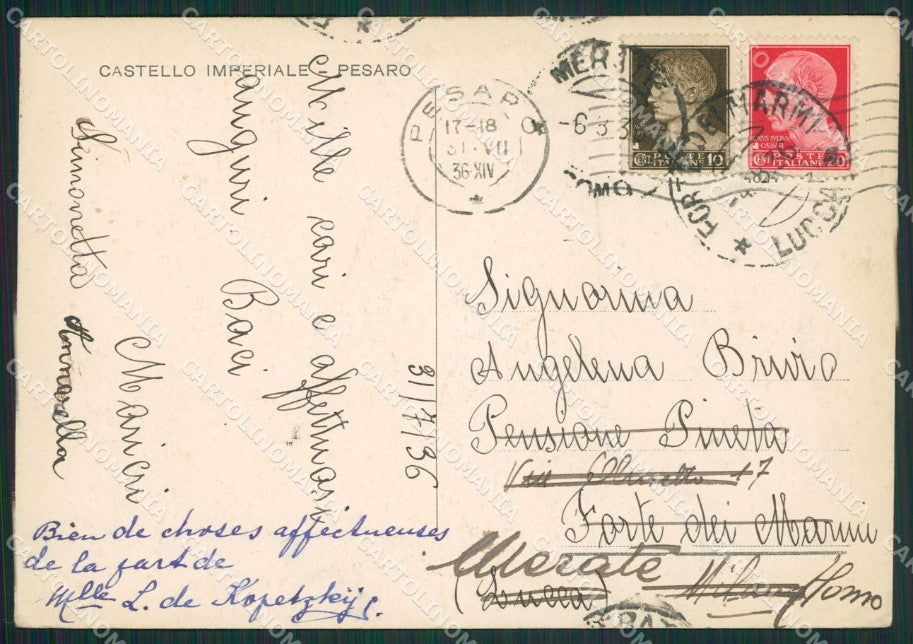 CASTELLO IMPERIALE - PESARO
Mille cari e affettuosi
auguri
Baci
Marici
Simonetta
Antonella
31/7/36
Bien de choses affectueuses
de la part de
Mlle L. de Kopetzkij
PESARO
17-18
31 VII
36·XIV
MERATE
-6
COMO
POSTE
ITALIANE
10
POSTE
ITALIANE
20
FORTE DEI MARMI
LUCCA
Signorina
Angelena Brivio
Pensione Pineta
17
Forte dei Marmi
Merate
(Lucca)
Milano
Como
CARTOLINOMANIA